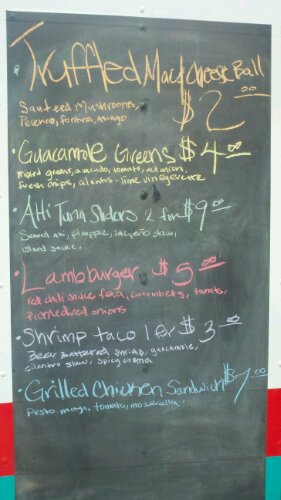 Truffled Mac & Cheese Ball
$2.00
Sauteed Mushrooms,
Pecorino, Fontina, Asiago
• Guacamole Greens $4.00
mixed greens, avocado, tomato, red onion,
fresh chips, cilantro-lime vinaigrette
• Ahi Tuna Sliders 2 for $9.00
Seared ahi, pineapple, jalapeño slaw,
island sauce
• Lamburger $5.00
red chili sauce feta, cucumbers, tomato,
pickled red onions
• Shrimp taco 1 for $3.00
Beer battered shrimp, guacamole,
cilantro slaw, spicy crema
• Grilled Chicken Sandwich $7.00
Pesto mayo, tomato, mozzarella